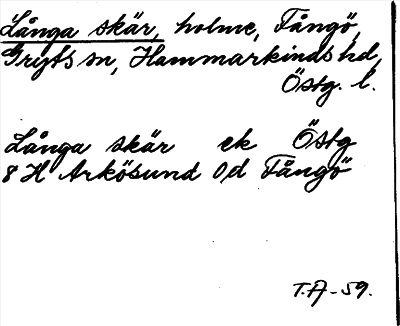 Långa skär, holme, Fångö,
Gryts sn, Hammarkinds hd,
Östg. l.
Långa skär ek Östg
8 H Arkösund Od Fångö
T.A-59.